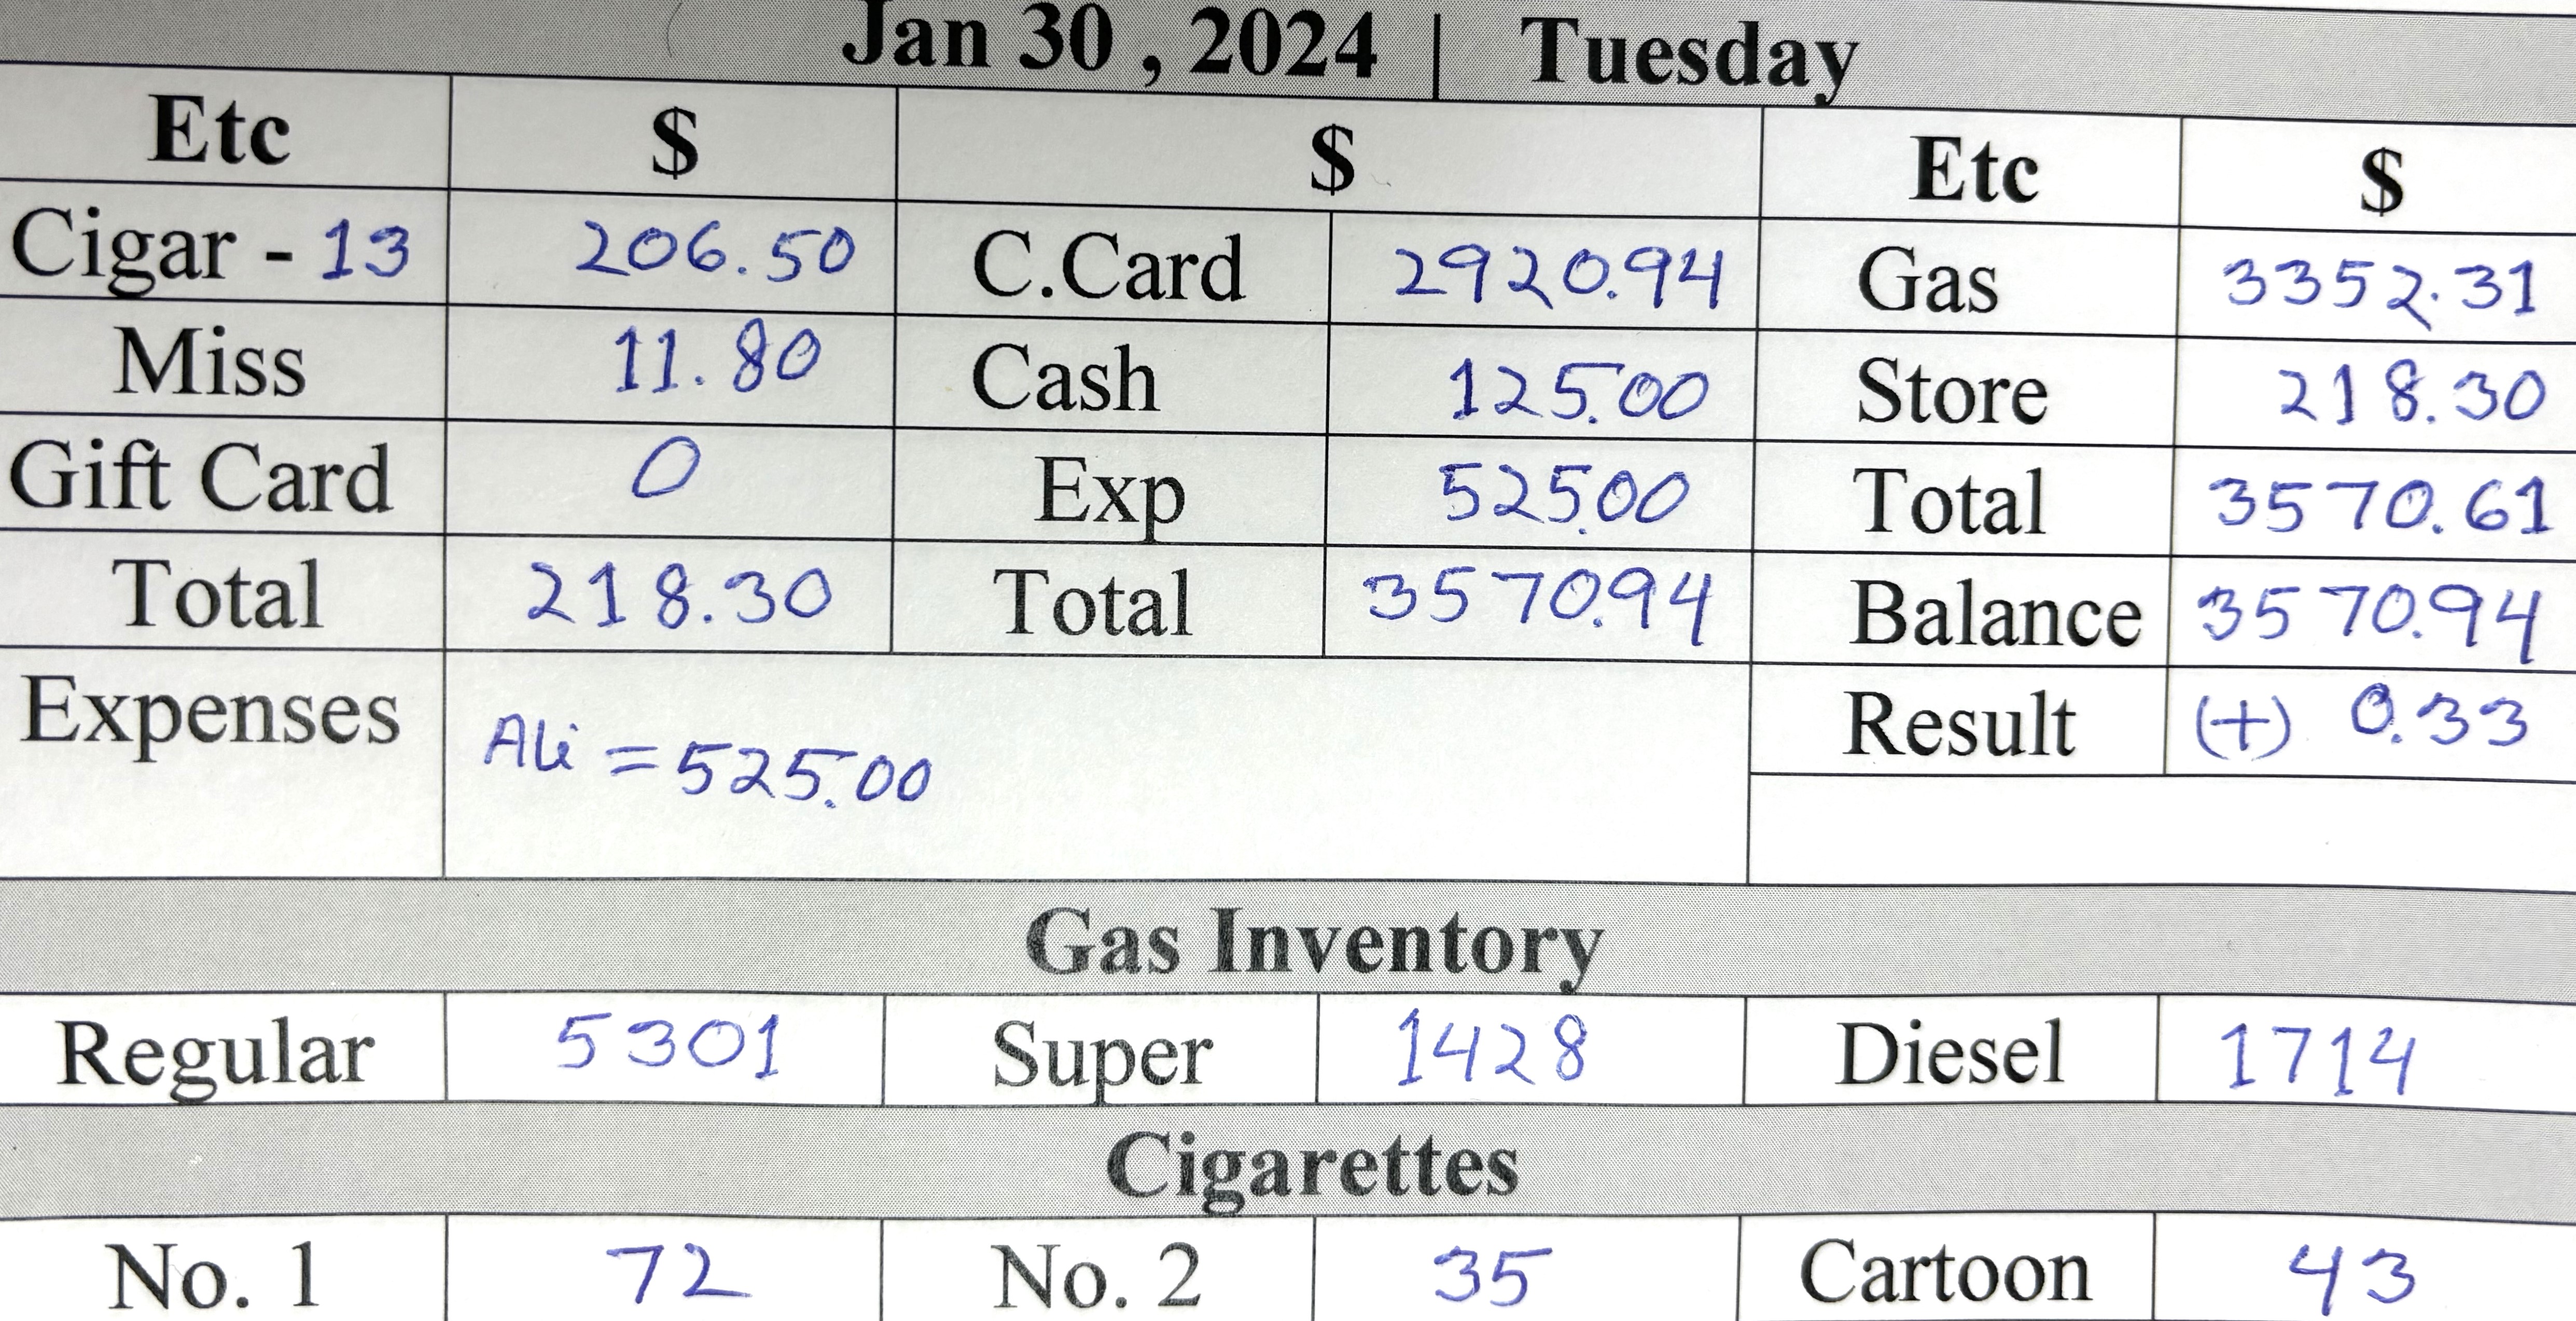 Jan 30 , 2024 | Tuesday
Etc $ $ Etc $
Cigar - 13 206.50 C.Card 2920.94 Gas 3352.31
Miss 11.80 Cash 125.00 Store 218.30
Gift Card 0 Exp 525.00 Total 3570.61
Total 218.30 Total 3570.94 Balance 3570.94
Expenses Ali = 525.00 Result (+) 0.33
Gas Inventory
Regular 5301 Super 1428 Diesel 1714
Cigarettes
No. 1 72 No. 2 35 Cartoon 43